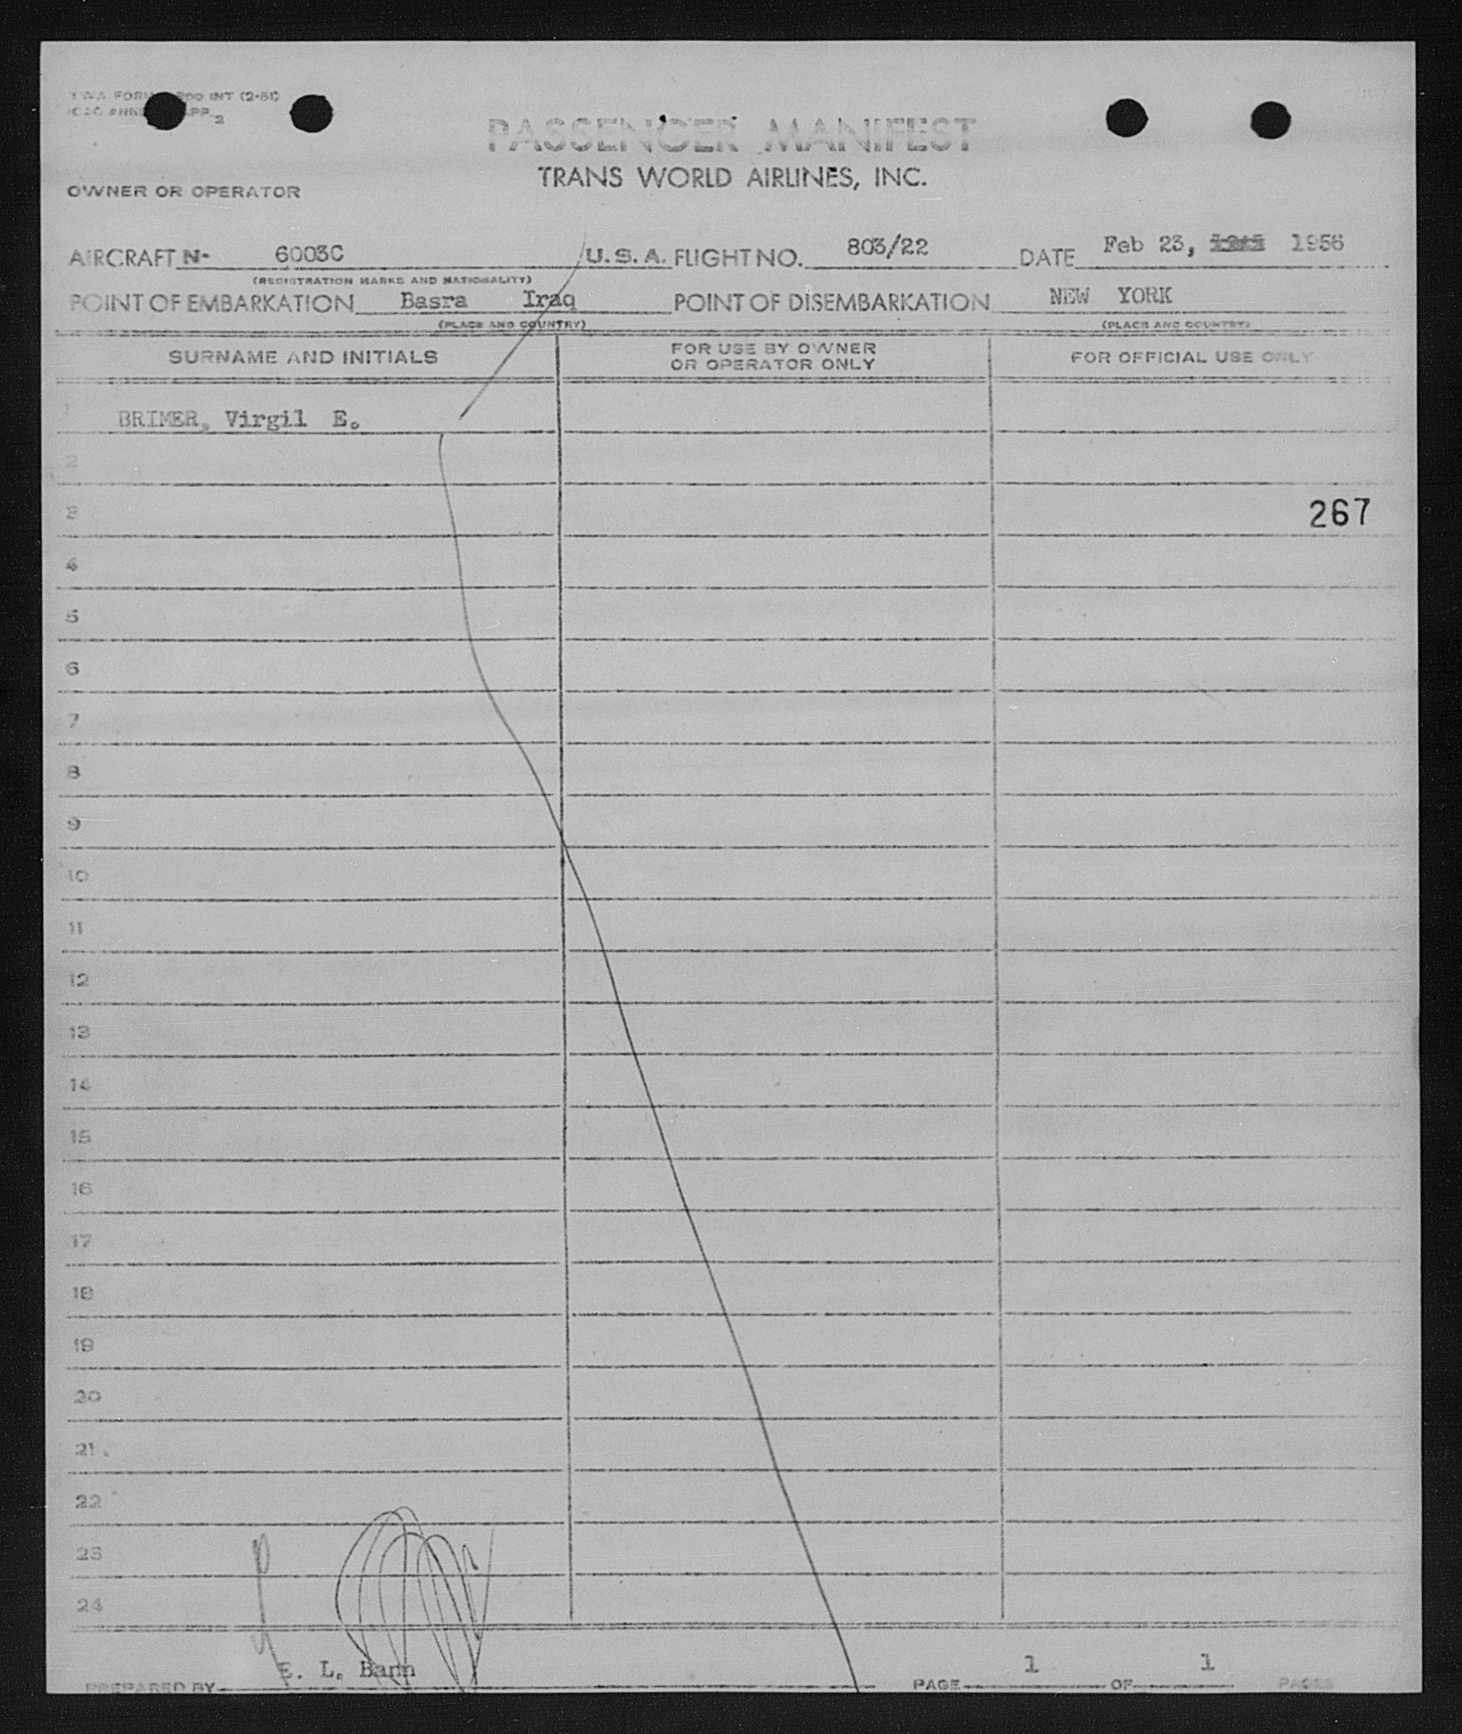 TWA FORM 200 INT (2-51)
ICAO ANNEX APP. 2
PASSENGER MANIFEST
TRANS WORLD AIRLINES, INC.
OWNER OR OPERATOR
AIRCRAFT N- 6003C U.S.A. FLIGHT NO. 803/22 DATE Feb 23, 1956
(REGISTRATION MARKS AND NATIONALITY)
POINT OF EMBARKATION Basra Iraq POINT OF DISEMBARKATION NEW YORK
(PLACE AND COUNTRY) (PLACE AND COUNTRY)
SURNAME AND INITIALS FOR USE BY OWNER OR OPERATOR ONLY FOR OFFICIAL USE ONLY
1 BRIMER, Virgil E.
2
3 267
4
5
6
7
8
9
10
11
12
13
14
15
16
17
18
19
20
21
22
23
24
E. L. Bann 1 1
PREPARED BY PAGE OF PAGES